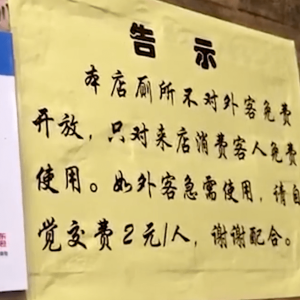 告示
本店厕所不对外客免费
开放，只对来店消费客人免费
使用。如外客急需使用，请自
觉交费2元/人，谢谢配合。